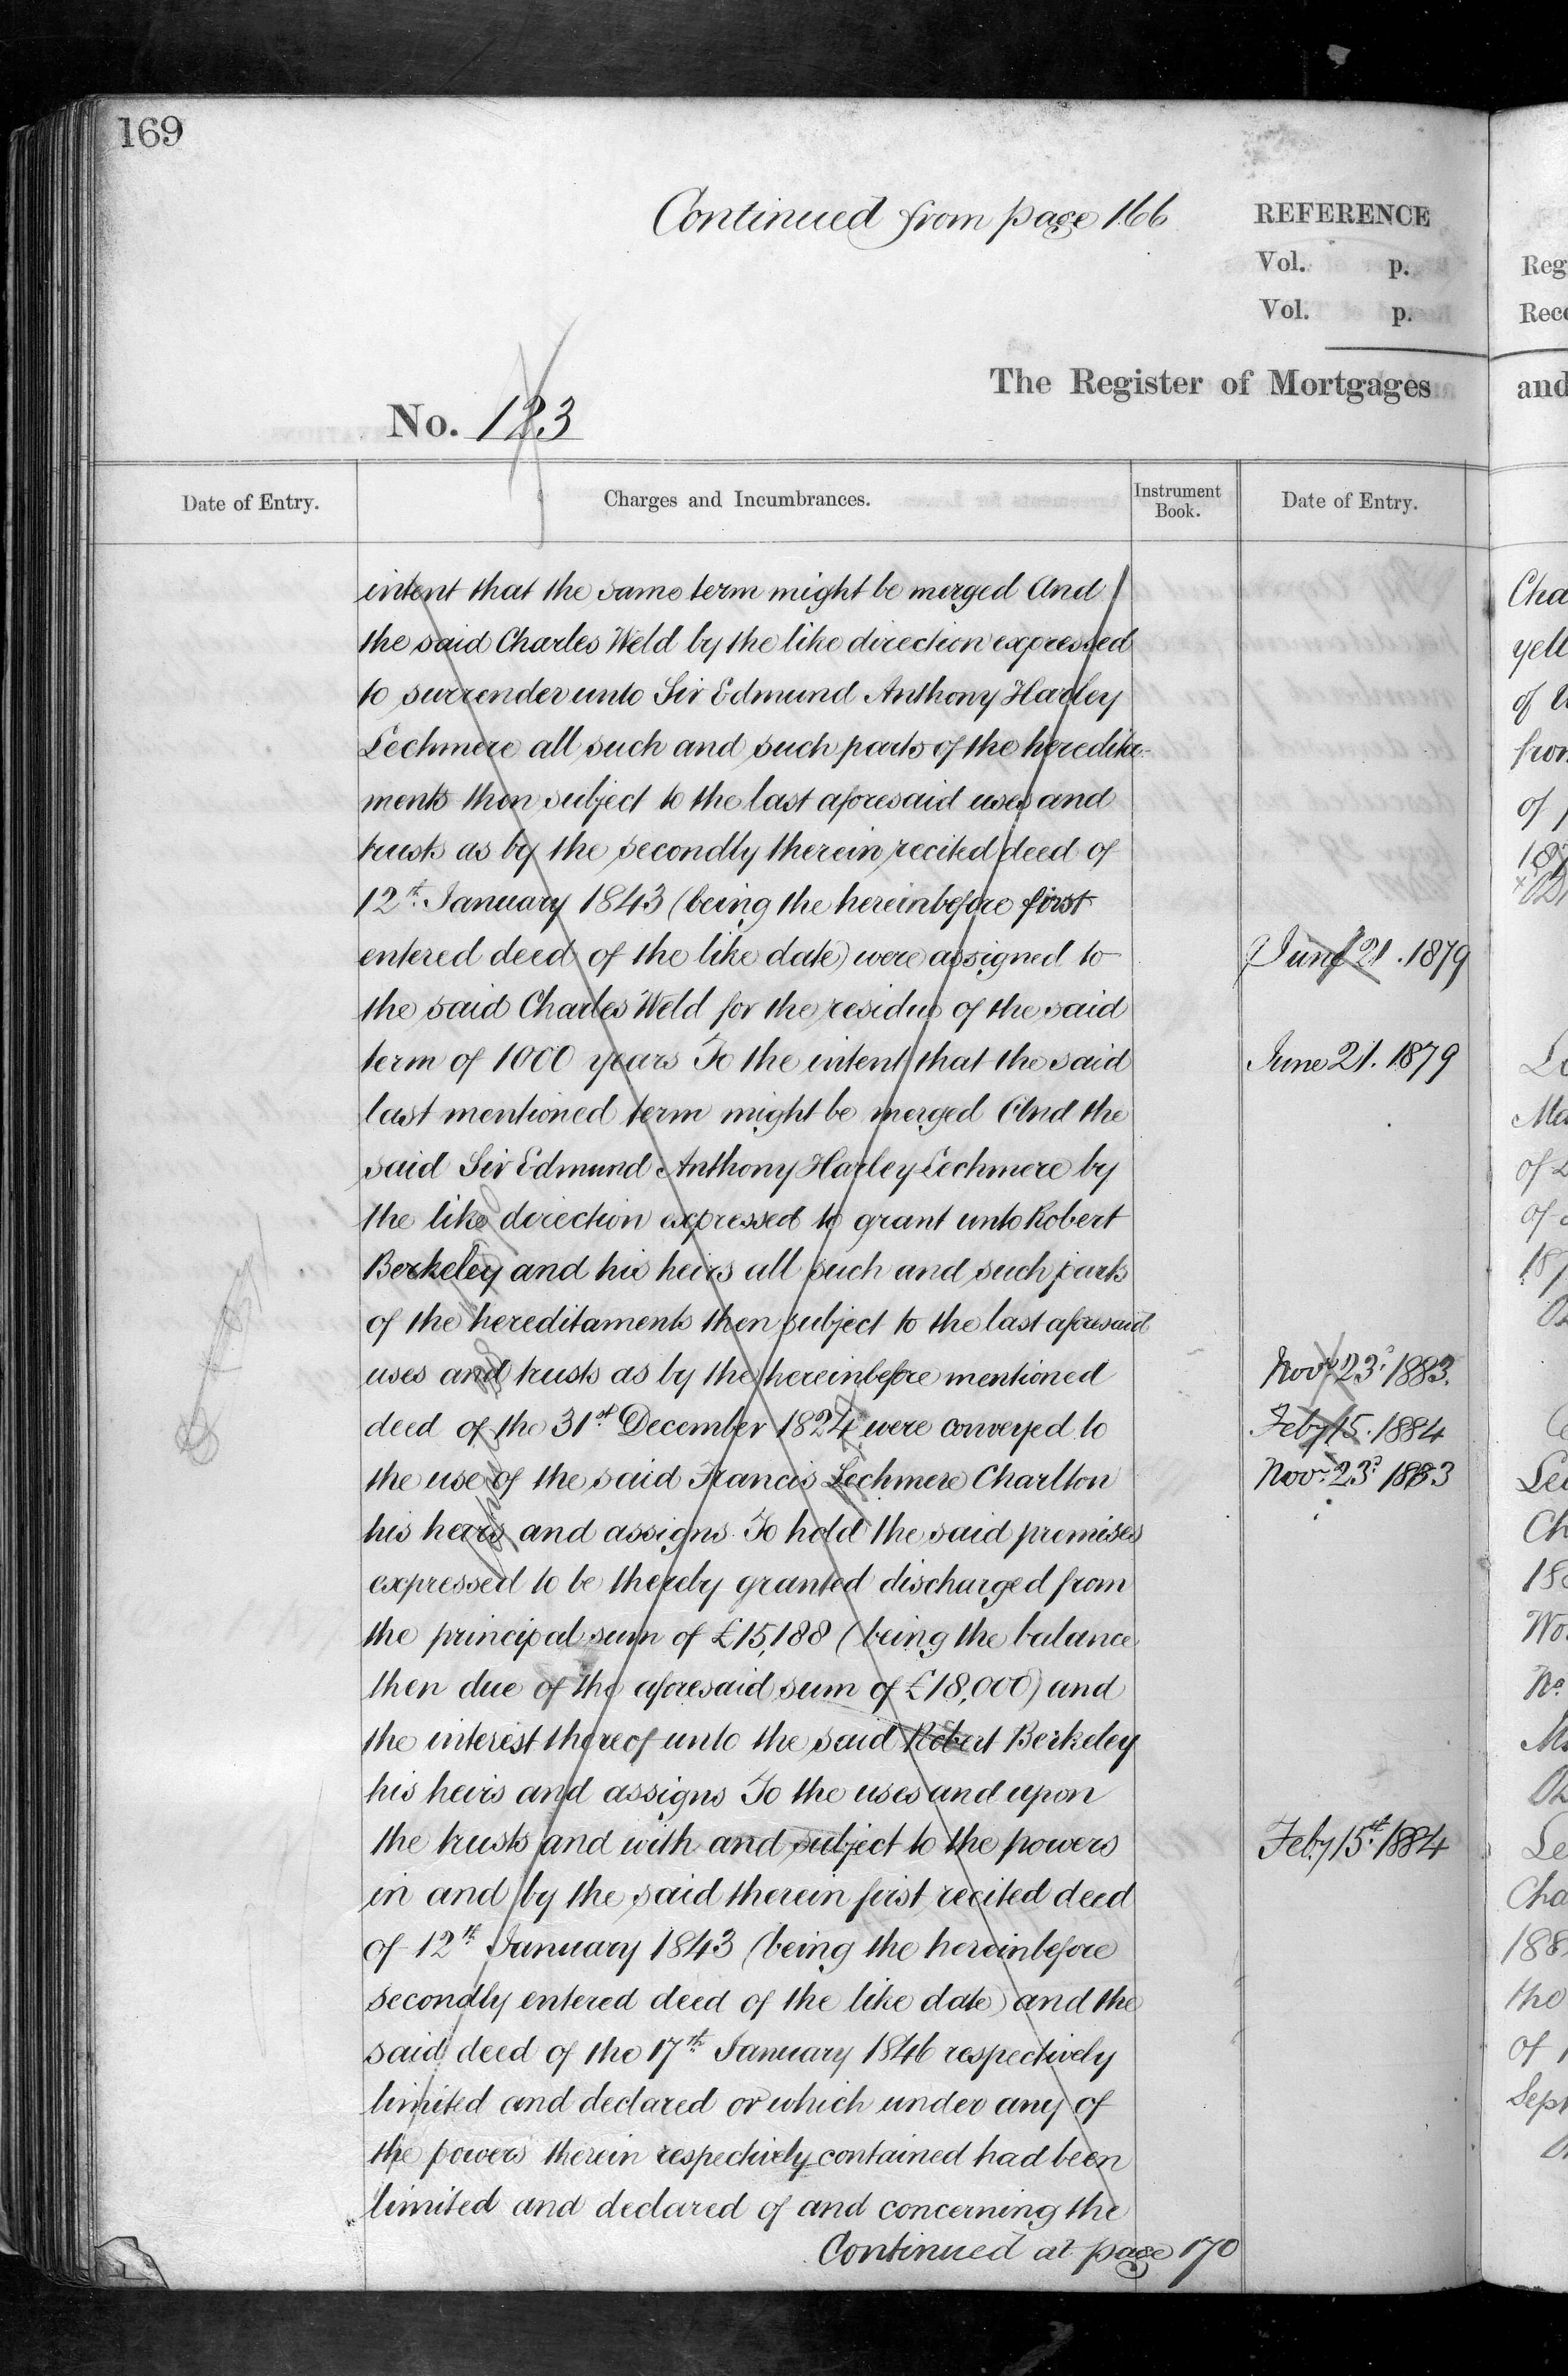 169
Continued from page 166
REFERENCE
Vol. p.
Vol. p.
The Register of Mortgages
No. 123
Date of Entry.
Charges and Incumbrances.
Instrument Book.
Date of Entry.
intent that the same term might be merged And
the said Charles Weld by the like direction expressed
to surrender unto Sir Edmund Anthony Harley
Lechmere all such and such parts of the heredita-
ments then subject to the last aforesaid uses and
trusts as by the secondly therein recited deed of
12th January 1843 (being the hereinbefore first
entered deed of the like date) were assigned to
the said Charles Weld for the residue of the said
term of 1000 years To the intent that the said
last mentioned term might be merged And the
said Sir Edmund Anthony Harley Lechmere by
the like direction expressed to grant unto Robert
Berkeley and his heirs all such and such parts
of the hereditaments then subject to the last aforesaid
uses and trusts as by the hereinbefore mentioned
deed of the 31st December 1824 were conveyed to
the use of the said Francis Lechmere Charlton
his heirs and assigns To hold the said premises
expressed to be thereby granted discharged from
the principal sum of £15,188 (being the balance
then due of the aforesaid sum of £18,000) and
the interest thereof unto the said Robert Berkeley
his heirs and assigns To the uses and upon
the trusts and with and subject to the powers
in and by the said therein first recited deed
of 12th January 1843 (being the hereinbefore
secondly entered deed of the like date) and the
said deed of the 17th January 1846 respectively
limited and declared or which under any of
the powers therein respectively contained had been
limited and declared of and concerning the
Continued at page 170
June 21. 1879
June 21. 1879
Novr 23d 1883.
Feby 15. 1884
Novr 23d 1883
Feby 15th 1884
Reg
Rec
and
Cha
yell
of
from
of
187
Ma
of
of
187
Ch
188
Wo
No
Le
Cha
188
the
of
Sept